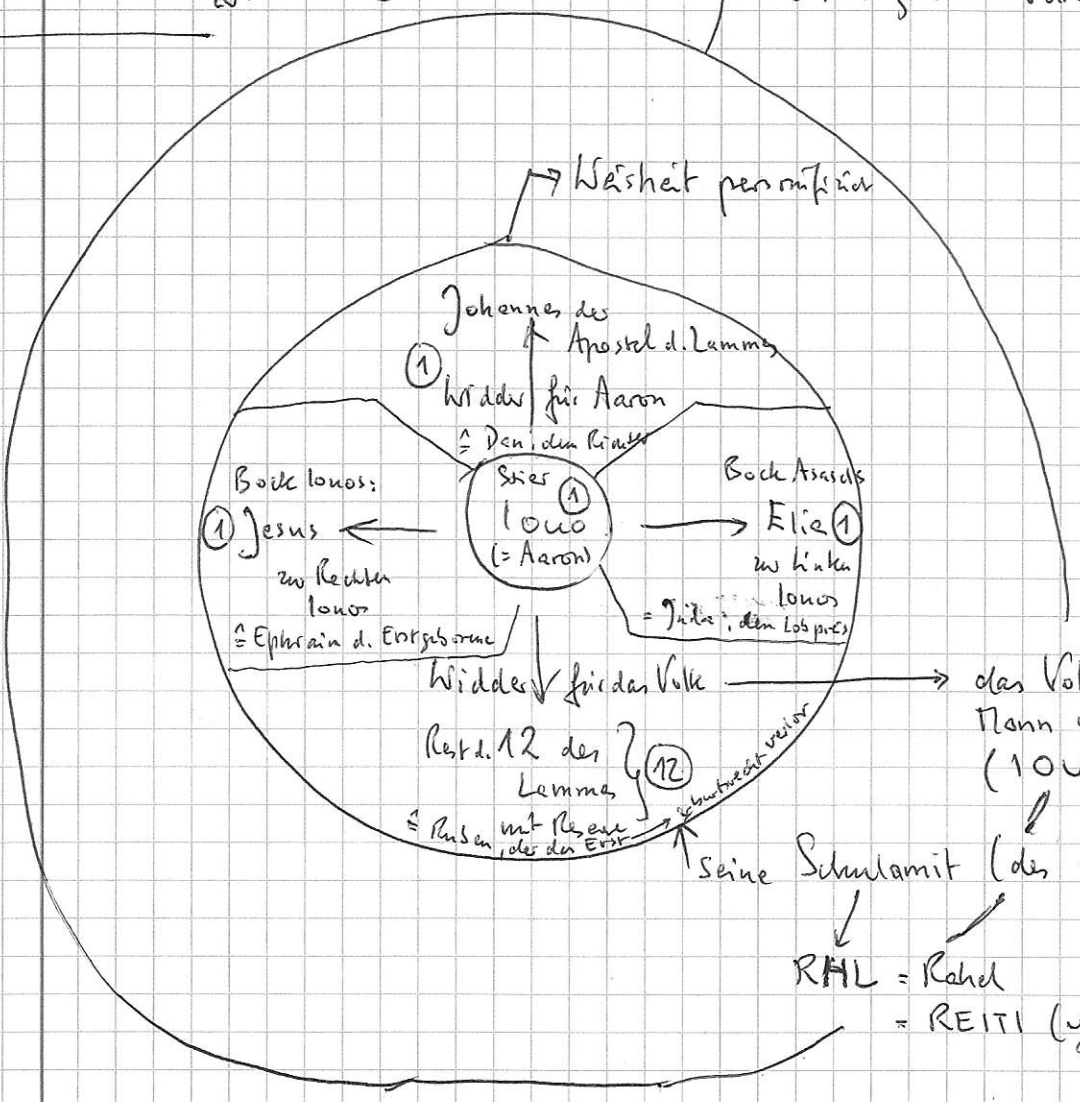 Weisheit personifiziert
Johannes der
Apostel d. Lammes
1
Widder für Aaron
≙ Dan, den Richter
Bock Iouos:
1 Jesus
zur Rechten
Iouos
≙ Ephraim d. Erstgeborene
Stier
1
Iouo
(= Aaron)
Bock Asasels
Elia 1
zur Linken
Iouos
= Juda: dem Lobpreis
Widder für das Volk
das Vol
Mann
(IOU
Rest d. 12 des
Lammes
12
≙ Ruben mit
, der das Erst-
geburtsrecht verlor
seine Schulamit (des
RHL = Rahel
= REITI (